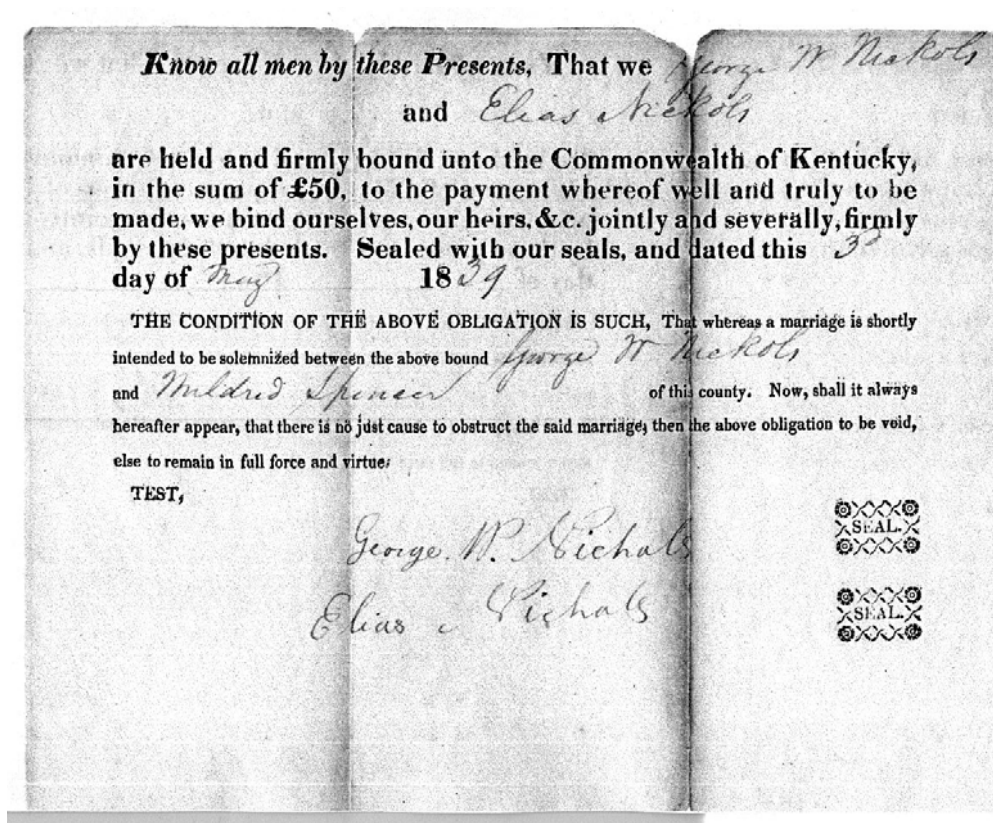 Know all men by these Presents, That we George W Nickols
and Elias Nickols
are held and firmly bound unto the Commonwealth of Kentucky,
in the sum of £50, to the payment whereof well and truly to be
made, we bind ourselves, our heirs, &c. jointly and severally, firmly
by these presents. Sealed with our seals, and dated this 3d
day of May 1839
THE CONDITION OF THE ABOVE OBLIGATION IS SUCH, That whereas a marriage is shortly
intended to be solemnized between the above bound George W Nickols
and Mildred Spencer of this county. Now, shall it always
hereafter appear, that there is no just cause to obstruct the said marriage, then the above obligation to be void,
else to remain in full force and virtue.
TEST,
SEAL.
George. W. Nichals
SEAL.
Elias Nichals